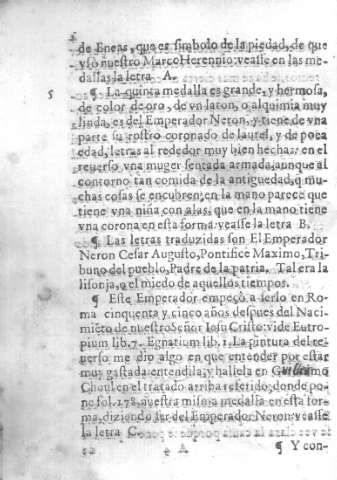 de Eneas, que es simbolo de la piedad, de que
vso nuestro Marco Herennio: veasse en las me-
dallas la letra A.
5 ¶ La quinta medalla es grande, y hermosa,
de color de oro, de vn laton, o alquimia muy
linda, es del Emperador Neron, y tiene de vna
parte su rostro coronado de laurel, y de poca
edad, letras al rededor muy bien hechas: en el
reuerso vna muger sentada armada, aunque al
contorno tan comida de la antiguedad, q̃ mu-
chas cosas se encubren: en la mano parece que
tiene vna niña con alas, que en la mano tiene
vna corona en esta forma: veasse la letra B.
¶ Las letras traduzidas son El Emperador
Neron Cesar Augusto, Pontifice Maximo, Tri-
buno del pueblo, Padre de la patria. Tal era la
lisonja, o el miedo de aquellos tiempos.
¶ Este Emperador empeçò a serlo en Ro-
ma cinquenta y cinco años despues del Naci-
miẽto de nuestro Señor Iesu Cristo: vide Eutro-
pium lib. 7. Egnatium lib. 1. La pintura del re-
uerso me dio algo en que entender por estar
muy gastada entendila, y hallela en Guillermo
Choul en el tratado arriba referido, donde po-
ne fol. 178. nuestra misma medalla en esta for-
ma, diziendo ser del Emperador Neron: veasse
la letra C.
¶ Y con-